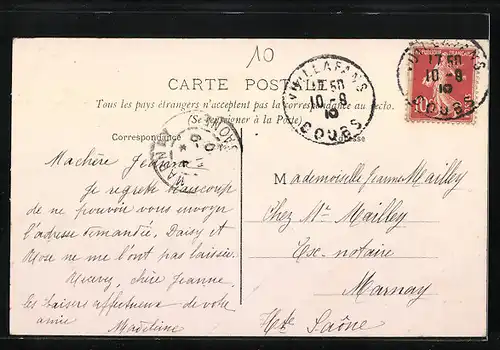 10
CARTE POSTALE
Tous les pays étrangers n'acceptent pas la correspondance au recto.
(Se renseigner à la Poste)
Correspondance
VUILLAFANS
11 50
10 -9
10
DOUBS
VUILLAFANS
11 50
10 -9
10
DOUBS
10
MARNAY
SAONE
Ma chère Jeanne
Je regrette beaucoup
de ne pouvoir vous envoyer
l'adresse demandée. Daisy et
ne me l'ont pas laissée.
chère Jeanne
les baisers affectueux de votre
amie
Madeleine
Mademoiselle Jeanne Mailley
Chez Mr Mailley
Exc. notaire
Marnay
Hte Saône